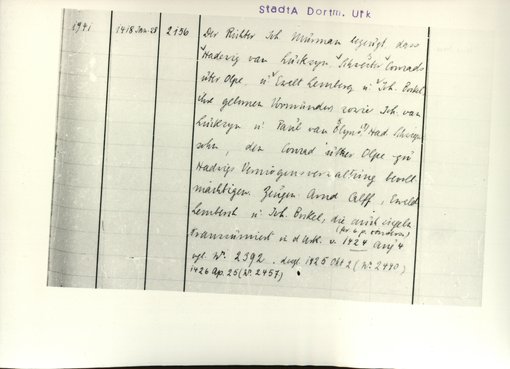 StadtA Dortm. Urk
1941 1418 Jan. 25 2156 Der Richter Joh Murman bezeugt, dass
Hadewig van Lütkryn, Schwester Conrads
üter Olpe, u Ewelt Lemberg u. Joh. Enkel
ihre gebornen Vormünder sowie Joh. van
Lütkryn u Paul van Had
sohn, den Conrad uther Olpe zu
Hadwigs Vermögensverwaltung bevoll
mächtigen. Zeugen: Arnd Calff, Ewelt
Lemberch u Joh. Enkel, die mitsiegeln
Transsumiert in d Urk. v. 1424 Aug 4
vgl. Nr. 2392. desgl. 1425 Okt 2 (Nr. 2440)
1426 Ap. 25 (Nr. 2457)